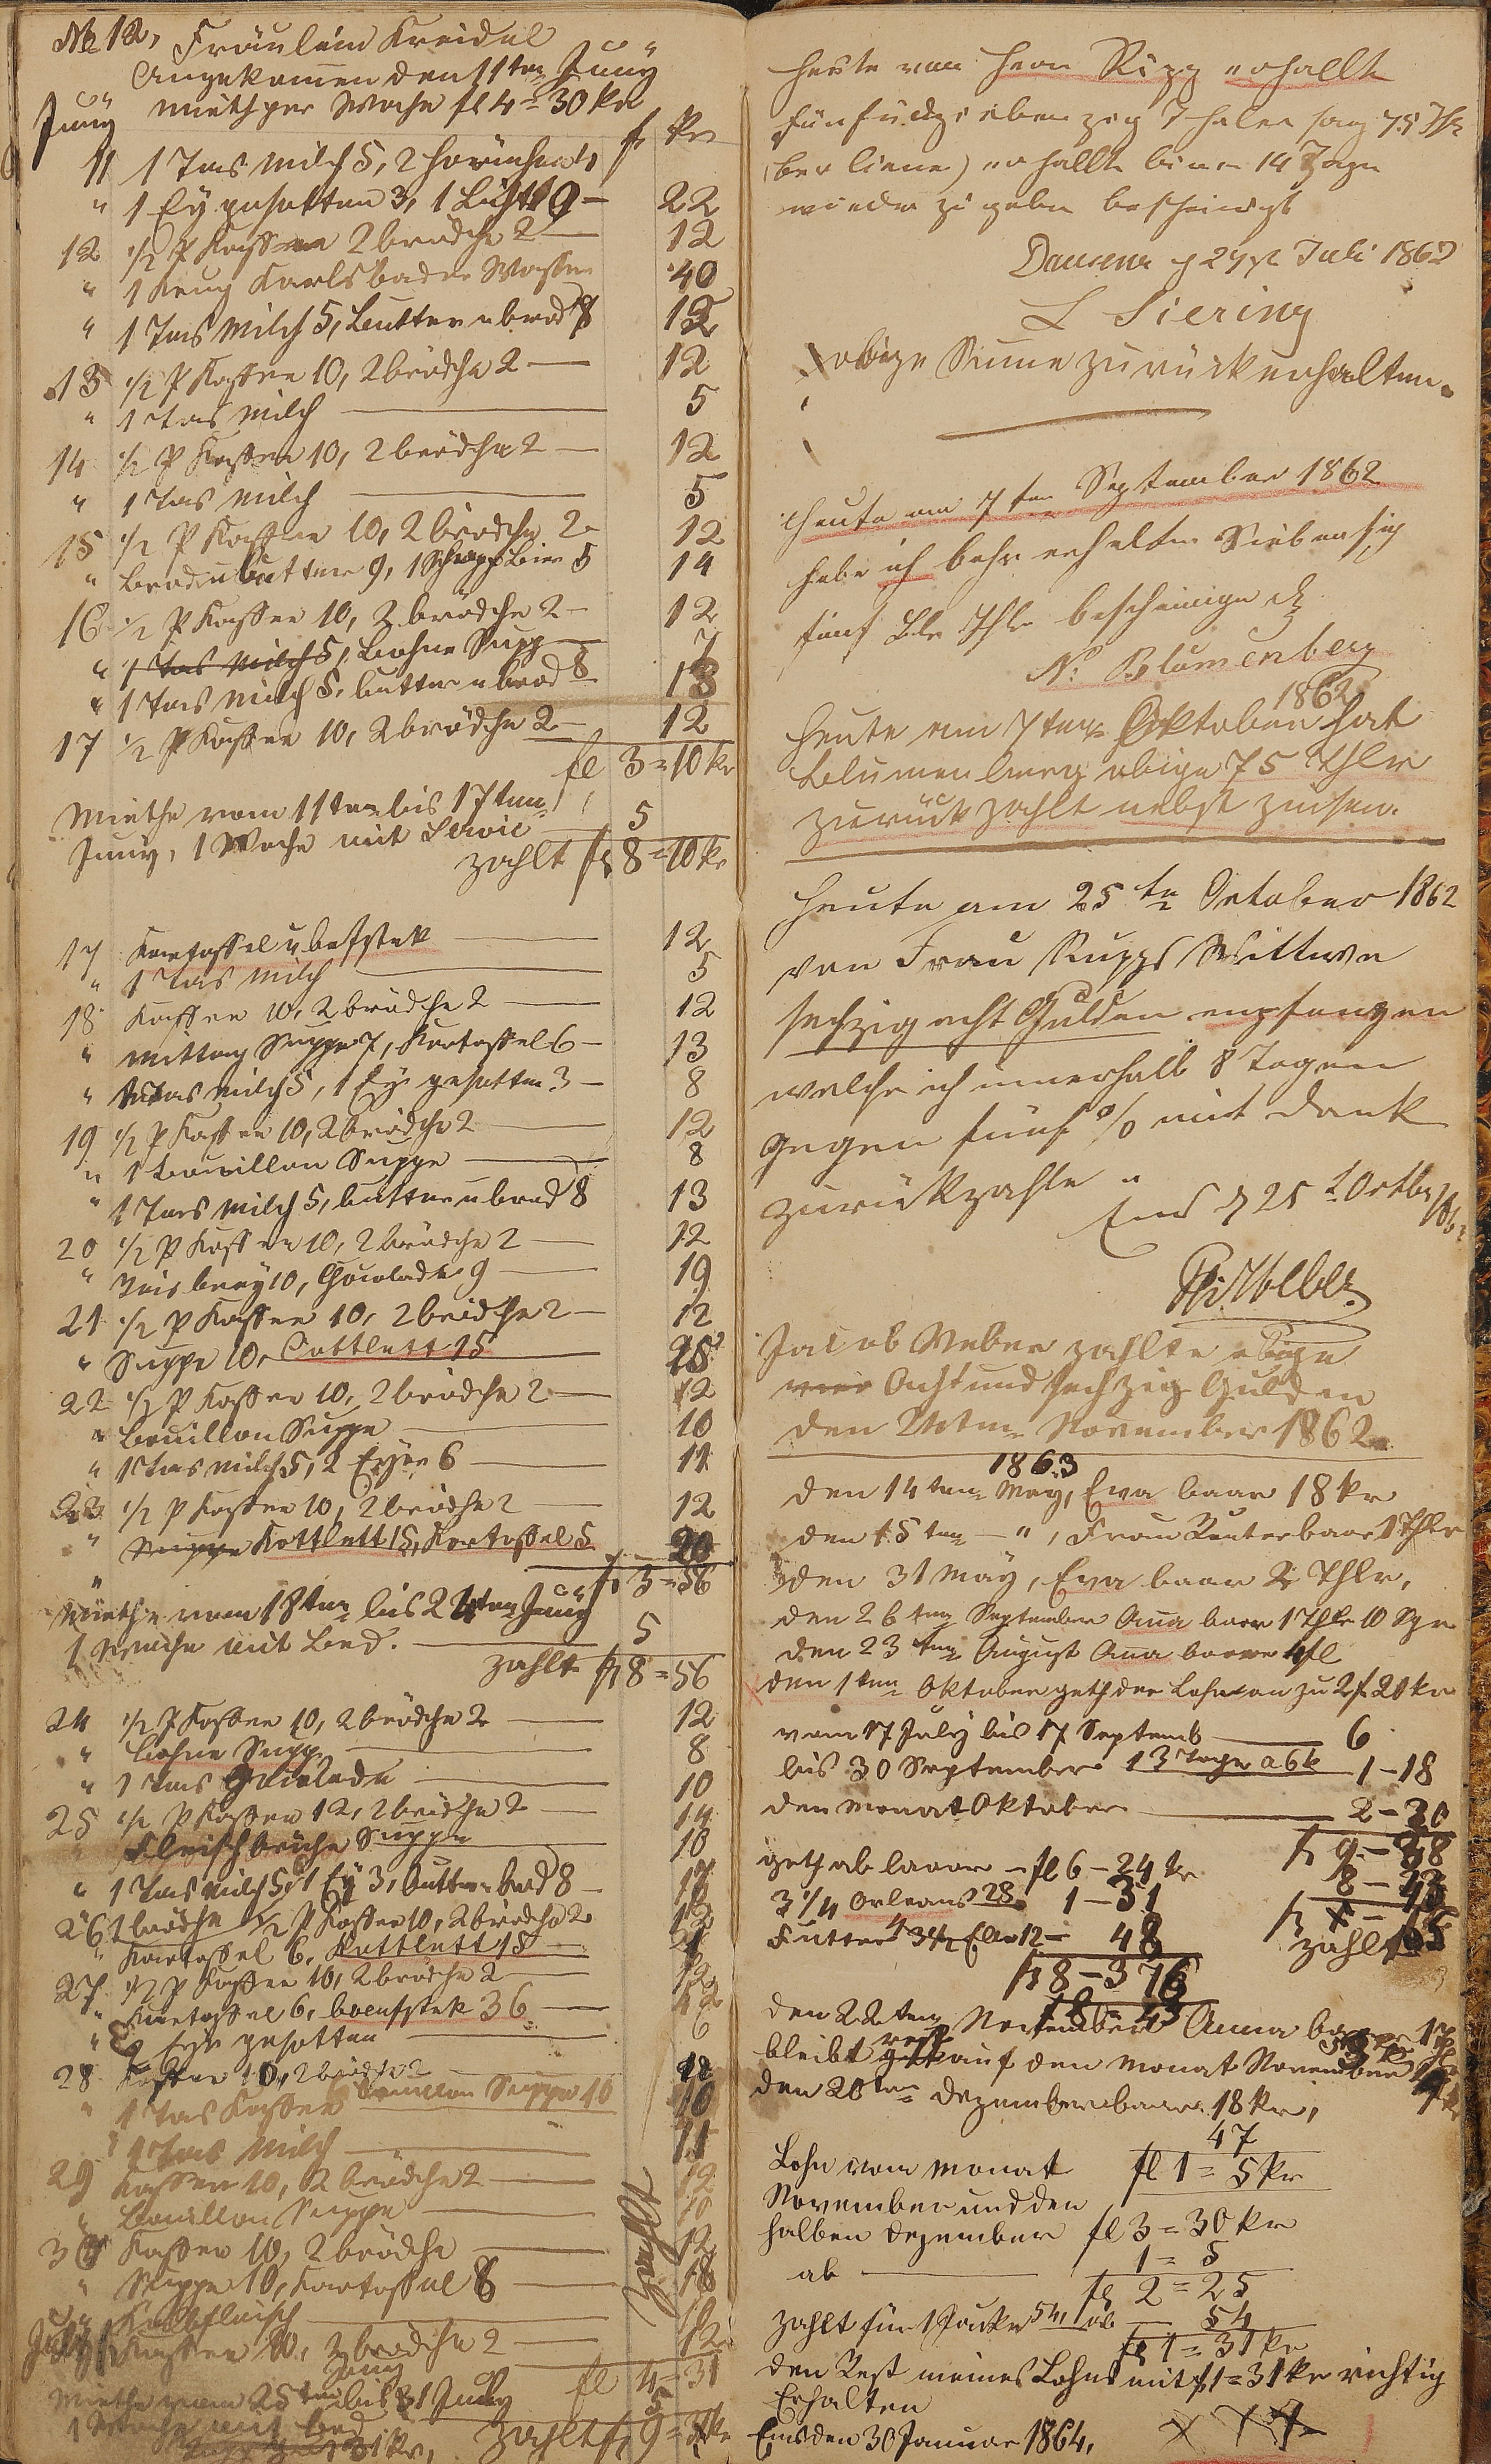 No 12, Fräulein Kreidel
Angekomen den 11ten Juny
Juny Mieth per Woche fl 4 = 30 kr
fl kr
11 1 Tas Milch 5, 2
" 1 Ey gesotten 3, 1 Licht 9 — 22
12 1/2 P Kaffee 2 brödche 2 — 12
" 1 Krug Karlsbader Wasser 40
" 1 Tas Milch 5, Butter u brod 8 13
13 1/2 P Kaffee 10, 2 brödche 2 — 12
" 1 Tas Milch — 5
14 1/2 P Kaffee 10, 2 brödche 2 — 12
" 1 Tas Milch — 5
15 1/2 P Kaffee 10, 2 brödche 2 — 12
" Brod u Butter 9, 1 Schopp Bier 5 14
16 1/2 P Kaffee 10, 2 brödche 2 — 12
" 1 Tas Milch 5, Bohne Supp — 7
" 1 Tas Milch 5, butter u brod 8 13
17 1/2 P Kaffee 10, 2 brödche 2 — 12
fl 3 = 10 kr
Miethe vom 11ten bis 17ten
Juny, 1 Woche mit Servie — 5
zahlt fl 8 = 10 kr
17 Kartoffel u befstek — 12
" 1 Tas Milch — 5
18 Kaffee 10, 2 brödche 2 — 12
" Mittag Suppe 7, Kartoffel 6 — 13
" 1 Tas Milch 5, 1 Ey gesotten 3 — 8
19 1/2 P Kaffee 10, 2 brödche 2 — 12
" 1 Bouillon Suppe — 8
" 1 Tas Milch 5, butter u brod 8 13
20 1/2 P Kaffee 10, 2 brödche 2 — 12
" Reisbrey 10, Chocolade 9 — 19
21 1/2 P Kaffee 10, 2 brödche 2 — 12
" Suppe 10, Cottlett 15 — 25
22 1/2 P Kaffee 10, 2 brödche 2 — 12
" Bouillon Suppe — 10
" 1 Tas Milch 5, 2 Eyer 6 — 11
23 1/2 P Kaffee 10, 2 brödche 2 — 12
" Suppe Kottlett 15, Kartoffel 5 — 20
fl 3 = 56
Miethe vom 18ten bis 24ten Juny
1 Woche mit Bed. — 5
zahlt fl 8 = 56
24 1/2 P Kaffee 10, 2 brödche 2 — 12
" Bohne Supp — 8
" 1 Tas Chocolade — 10
25 1/2 P Kaffee 12, 2 brödche 2 — 14
" Fleischbrühe Suppe — 10
" 1 Tas Milch 5, 1 Ey 3, Butter u brod 8 —
26 1 brödche 1/2 P Kaffee 10, 2 brödche 2
" Kartoffel 6, Kottlett 15 —
27 1/2 P Kaffee 10, 2 brödche 2 — 12
" Kartoffel 6, boeufstek 36 — 42
" 2 Eyr gesotten — 6
28 Kaffee 10, 2 brödche 2 — 12
" 1 Tas Kaffee Bouillon Suppe 10 10
" 1 Tas Milch — 11
29 Kaffee 10, 2 brödche 2 — 12
" Bouillon Suppe — 10
30 Kaffee 10, 2 brödche — 12
" Suppe 10, Kartoffel 8 — 18
" Kalbfleisch —
July 1 Kaffee 10, 2 brödche 2 — 12
zahlt
fl 4 = 31
Miethe vom 25ten Juny bis 31 July
1 Woche mit Bed 5
zahlt fl 9 = 31 kr
heute von Herrn Ripp erhallte
fünfundsiebenzig Thaler sag 75 Th
(berliene) erhallte binen 14 Tage
wieder zu geben bescheinigt
Dausenau d 29st Juli 1862
L Siering
obige Sume zurück erhalten.
Heute am 7ten September 1862
habe ich bahr erhalten Siebensig
fünf Thlr bescheinige d
N. Blumenberg
1862
Heute am 7ten Oktober hat
Blumenberg obige 75 Thlr
zurückzahlt nebst Zinsen.
Heute am 25te October 1862
von Frau Rupps Wittwe
sechzig acht Gulden empfangen
welche ich innerhalb 8 Tagen
gegen fünf % mit Dank
zurückzahle
Ems d 25t Octbr 1862
Weber
Jacob Weber zahlte obige
vier Acht und sechzig Gulden
den ten November 1862
1863
den 14ten May, Eva baar 18 kr
den 15ten — ", Frau Reuter baar 1 Thlr
den 31 May, Eva baar 2 Thlr,
den 26ten September Anna baar 1 Thlr 10 Sgr
den 23ten August Anna baar 4 fl
den 1ten Oktober geth der Lohn an zu 2 fl 20 kr
vom 17 July bis 17 Septemb — 6
bis 30 September 13 Tage a 6 k 1 - 18
den Monat Oktober — 2 - 20
fl 9 - 38
geth ab baar — fl 6 - 24 kr
3 1/4 Orleans 28 1 - 31
Futter 4 Elle 12 — 48
zahlt
den 22ten November Anna baar
bleibt rest auf den Monat November
den 20ten Dezember baar 18 kr,
47
Lohn vom Monat fl 1 = 5 kr
November und den
halben Dezember fl 3 = 30 kr
ab — 1 = 5
fl 2 = 25
zahlt für 1 Jacke 54, ab — 54
fl 1 = 31 kr
den Rest meines Lohns mit fl 1 = 31 kr richtig
Erhalten
Ems den 30 Januar 1864, x x x